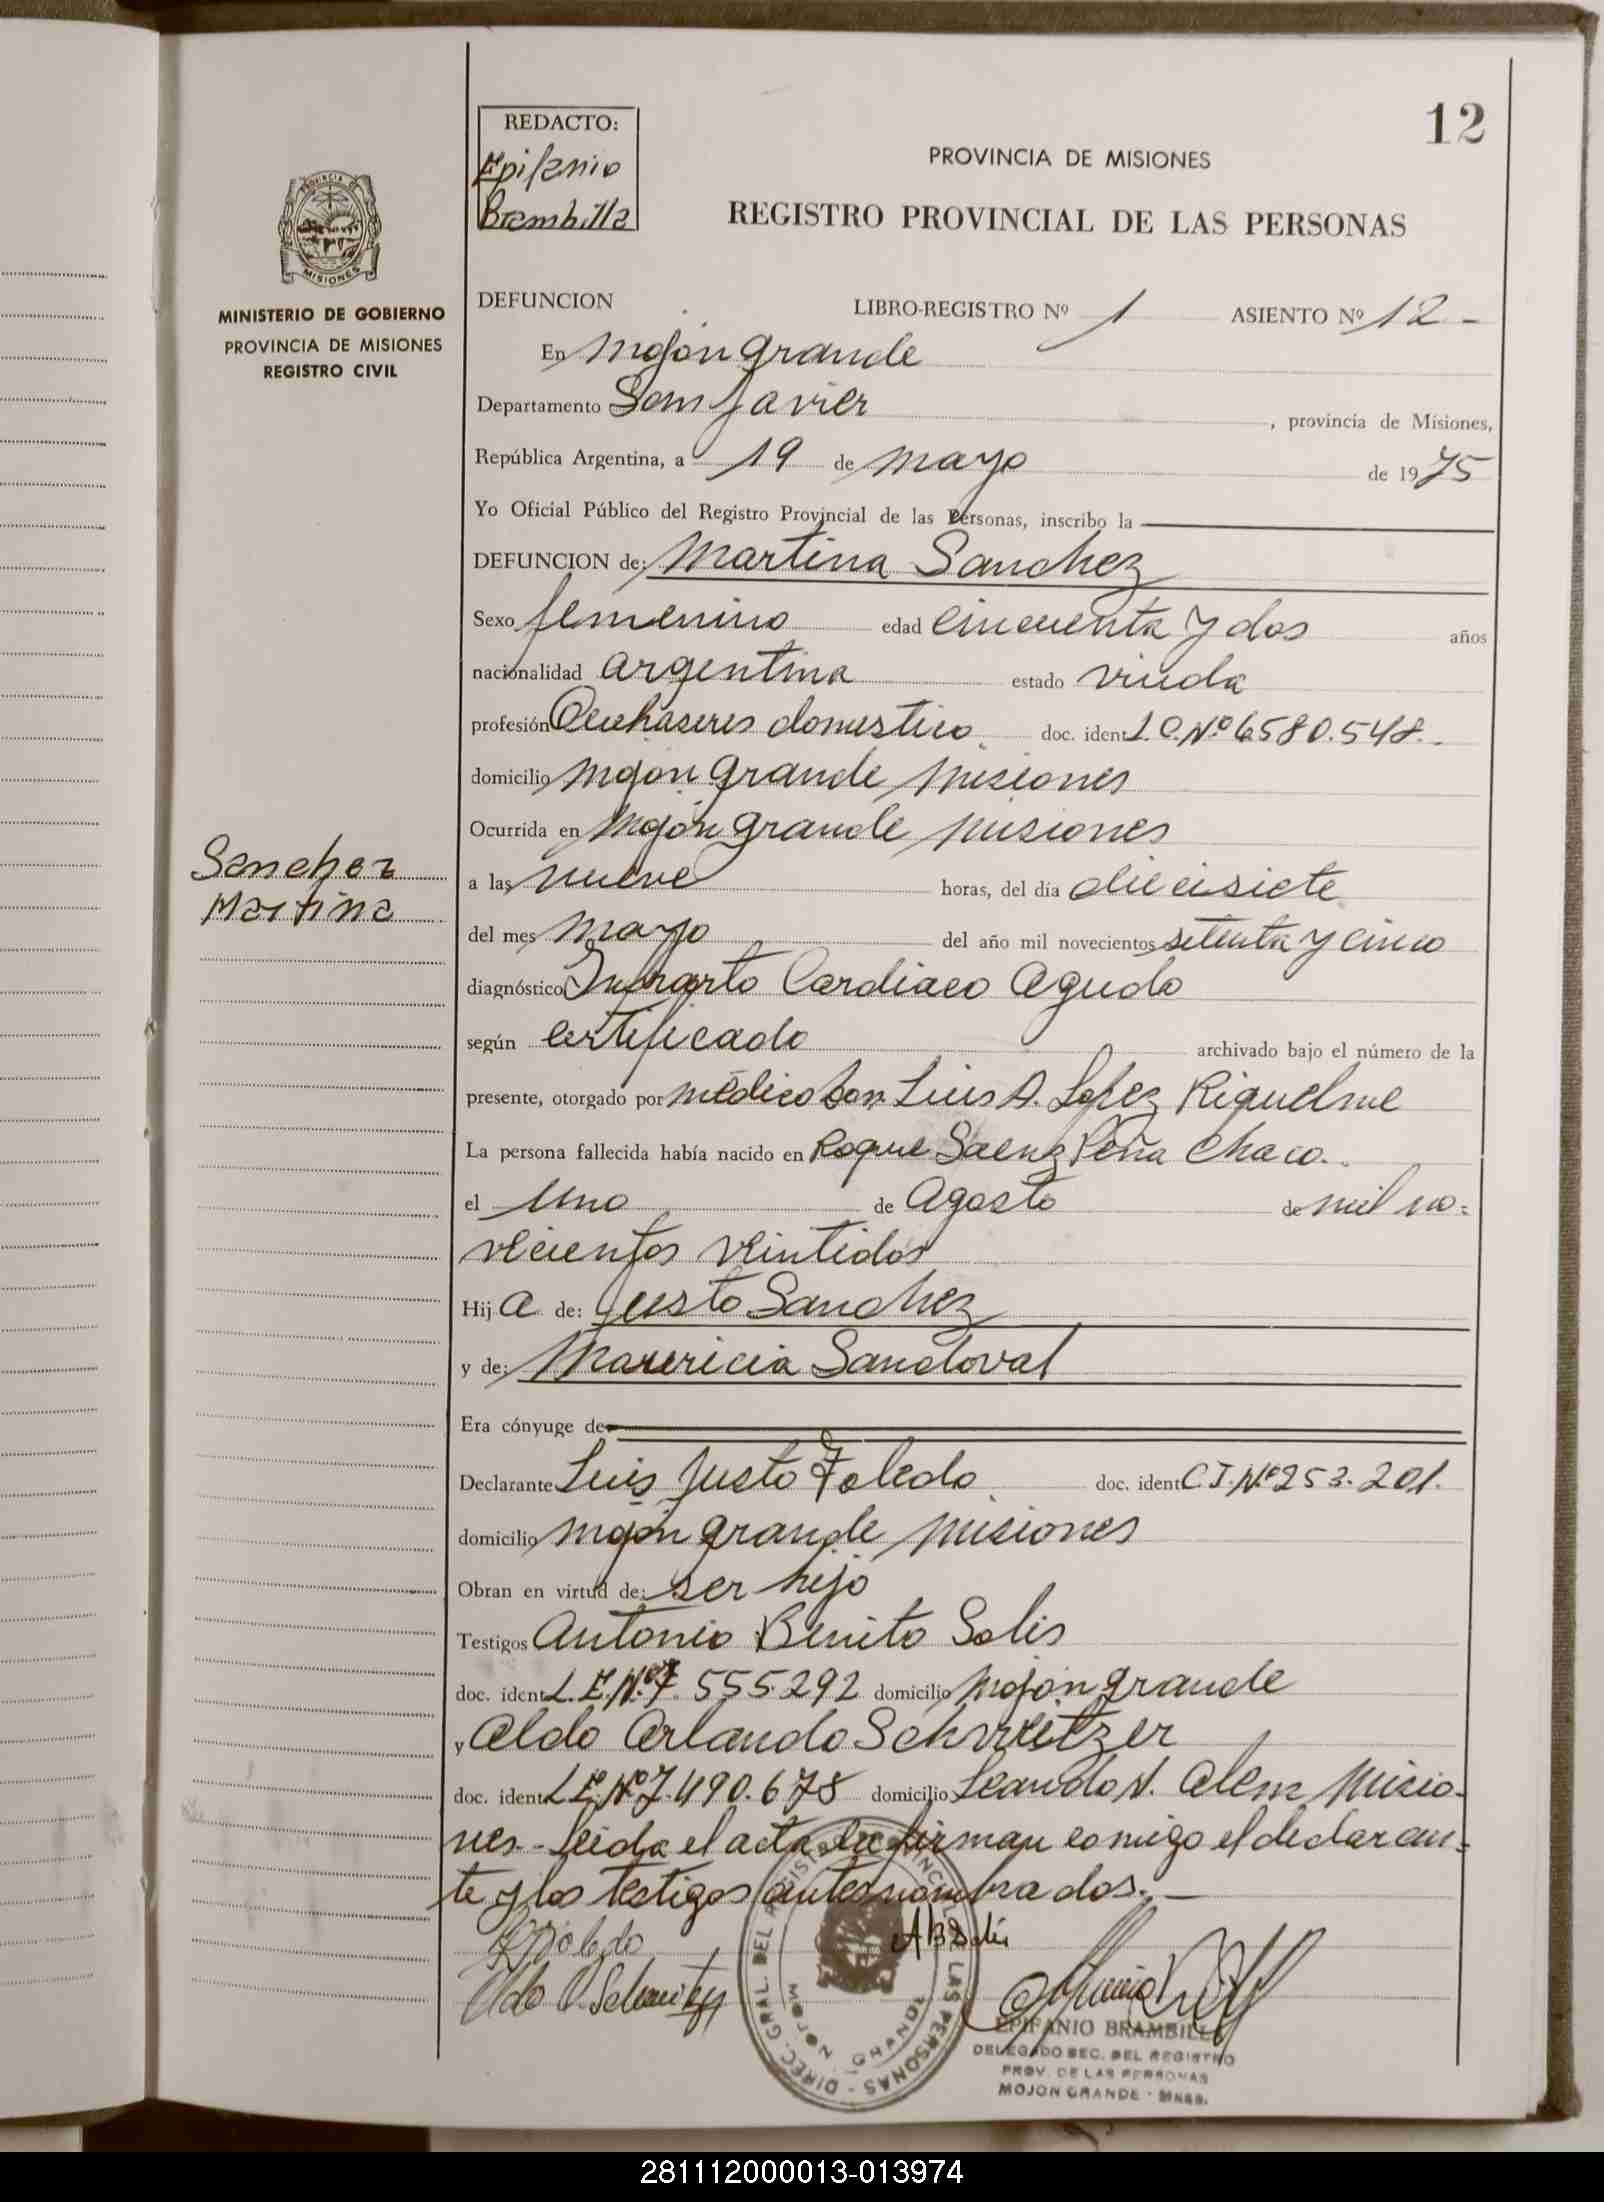 12
REDACTO:
Epifanio
Brambilla
PROVINCIA DE MISIONES
REGISTRO PROVINCIAL DE LAS PERSONAS
PROVINCIA DE
MISIONES
MINISTERIO DE GOBIERNO
PROVINCIA DE MISIONES
REGISTRO CIVIL
DEFUNCION LIBRO-REGISTRO Nº 1 ASIENTO Nº 12 -
En Mojon grande
Departamento San Javier, provincia de Misiones,
República Argentina, a 19 de mayo de 1975
Yo Oficial Público del Registro Provincial de las Personas, inscribo la
DEFUNCION de: Martina Sanchez
Sexo femenino edad cincuenta y dos años
nacionalidad argentina estado viuda
profesión Quehaseres domestico. doc. ident L.C. Nº 6.580.548.-
domicilio Mojon grande Misiones
Ocurrida en Mojón grande Misiones
Sanchez
Martina
a las nueve horas, del día diecisiete
del mes mayo del año mil novecientos setenta y cinco
diagnóstico Infarto Cardiaco Agudo
según certificado archivado bajo el número de la
presente, otorgado por médico Don Luis A. Lopez Riquelme
La persona fallecida había nacido en Roque Saenz Peña Chaco.-
el uno de Agosto de mil no=
vecientos veintidos
Hij a de: Justo Sanchez
y de: Mauricia Sandoval
Era cónyuge de
Declarante Luis Justo Toledo doc. ident C.I. Nº 253.201.
domicilio Mojón grande Misiones
Obran en virtud de: ser hijo
Testigos Antonio Benito Solis
doc. ident L.E. Nº 7.555.292 domicilio Mojón grande
y Aldo Orlando Schweitzer
doc. ident L.E. Nº 7.490.678 domicilio Leandro N. Alem Misio-
nes.- Leida el acta la firman comigo el declaran=
te y los testigos antesnombrados.-
L J Toledo
ABSolis
Aldo O. Schweitzer
DIREC. GRAL. DEL REGISTRO PROVINCIAL DE LAS PERSONAS -
MOJON GRANDE
EPIFANIO BRAMBILLA
DELEGADO SEC. DEL REGISTRO
PROV. DE LAS PERSONAS
MOJON GRANDE - MNES.
281112000013-013974